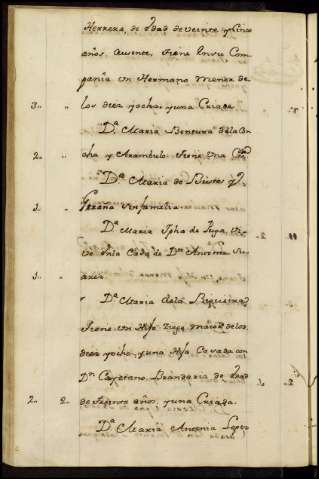 Herrera, de Edad de veinte y Cinco
años, Ausente, tiene en su Com
pañia un Hermano Menor de
3.. " los diez y ocho, y una Criada
Dª. Maria Bentura de la Con
2.. " cha y Arambulo tiene una Criada
Dª. Maria de
1.. " sin familia
Dª. Maria Jpha de Puga, Vi
ve en la Casa de Dn. Antonio
1.. "
Dª. Maria de la
tiene un Hijo suyo maior de los
diez y ocho, y una Hija Casada con
Dn. Cayetano, de Edad
2.. 2.. de años, y una Criada.
Dª. Maria Antonia Lopez